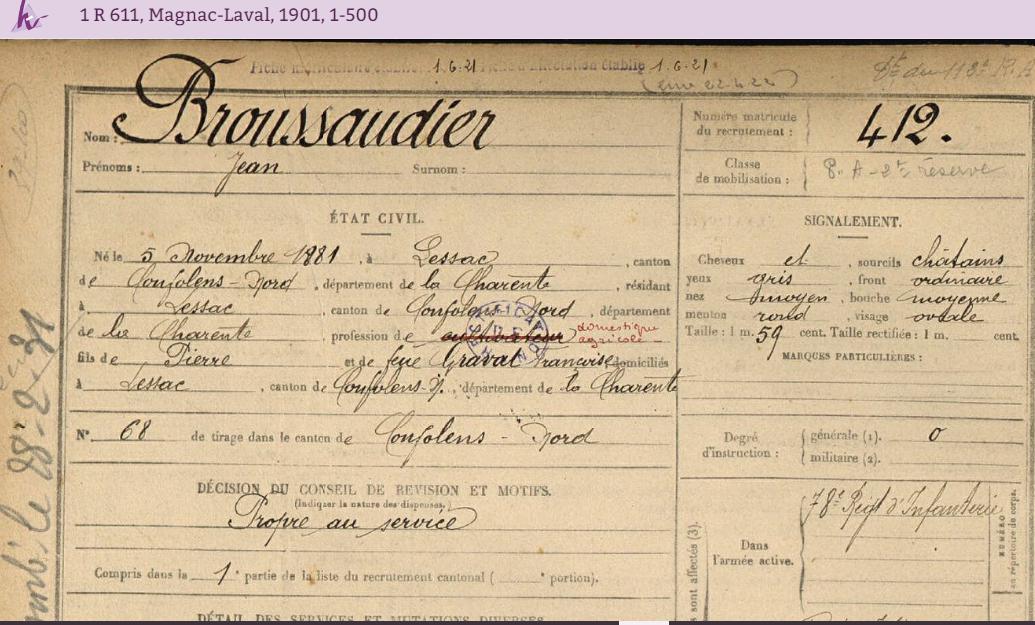 1 R 611, Magnac-Laval, 1901, 1-500
1.6.21 établie 1.6.21
Nom : Broussaudier
Prénoms : Jean Surnom :
Numéro matricule du recrutement : 412.
Classe de mobilisation : P. A - 2e réserve
ÉTAT CIVIL.
Né le 5 Novembre 1881, à Lessac, canton
de Confolens-Nord, département de la Charente, résidant
à Lessac canton de Confolens Nord, département
de la Charente profession de cultivateur domestique agricole
fils de Pierre et de feue Gravat Françoise domiciliés
à Lessac, canton de Confolens-N., département de la Charente
N° 68 de tirage dans le canton de Confolens - Nord
SIGNALEMENT.
Cheveux et, sourcils châtains
yeux gris, front ordinaire
nez moyen, bouche moyenne
menton rond, visage ovale
Taille : 1 m. 59 cent. Taille rectifiée : 1 m. cent.
MARQUES PARTICULIÈRES :
Degré d'instruction : générale (1). 0
militaire (2).
DÉCISION DU CONSEIL DE REVISION ET MOTIFS.
(Indiquer la nature des dispenses.)
Propre au service
Compris dans la 1e partie de la liste du recrutement cantonal ( e portion).
DÉTAIL DES SERVICES ET MUTATIONS DIVERSES
Dans l'armée active.
78e Régt d'Infanterie
NUMÉRO au répertoire de corps.
sont affectés (3).